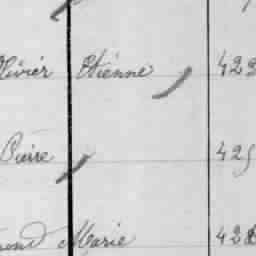 Olivier Etiénne 429
Pierre 425
Marie 428